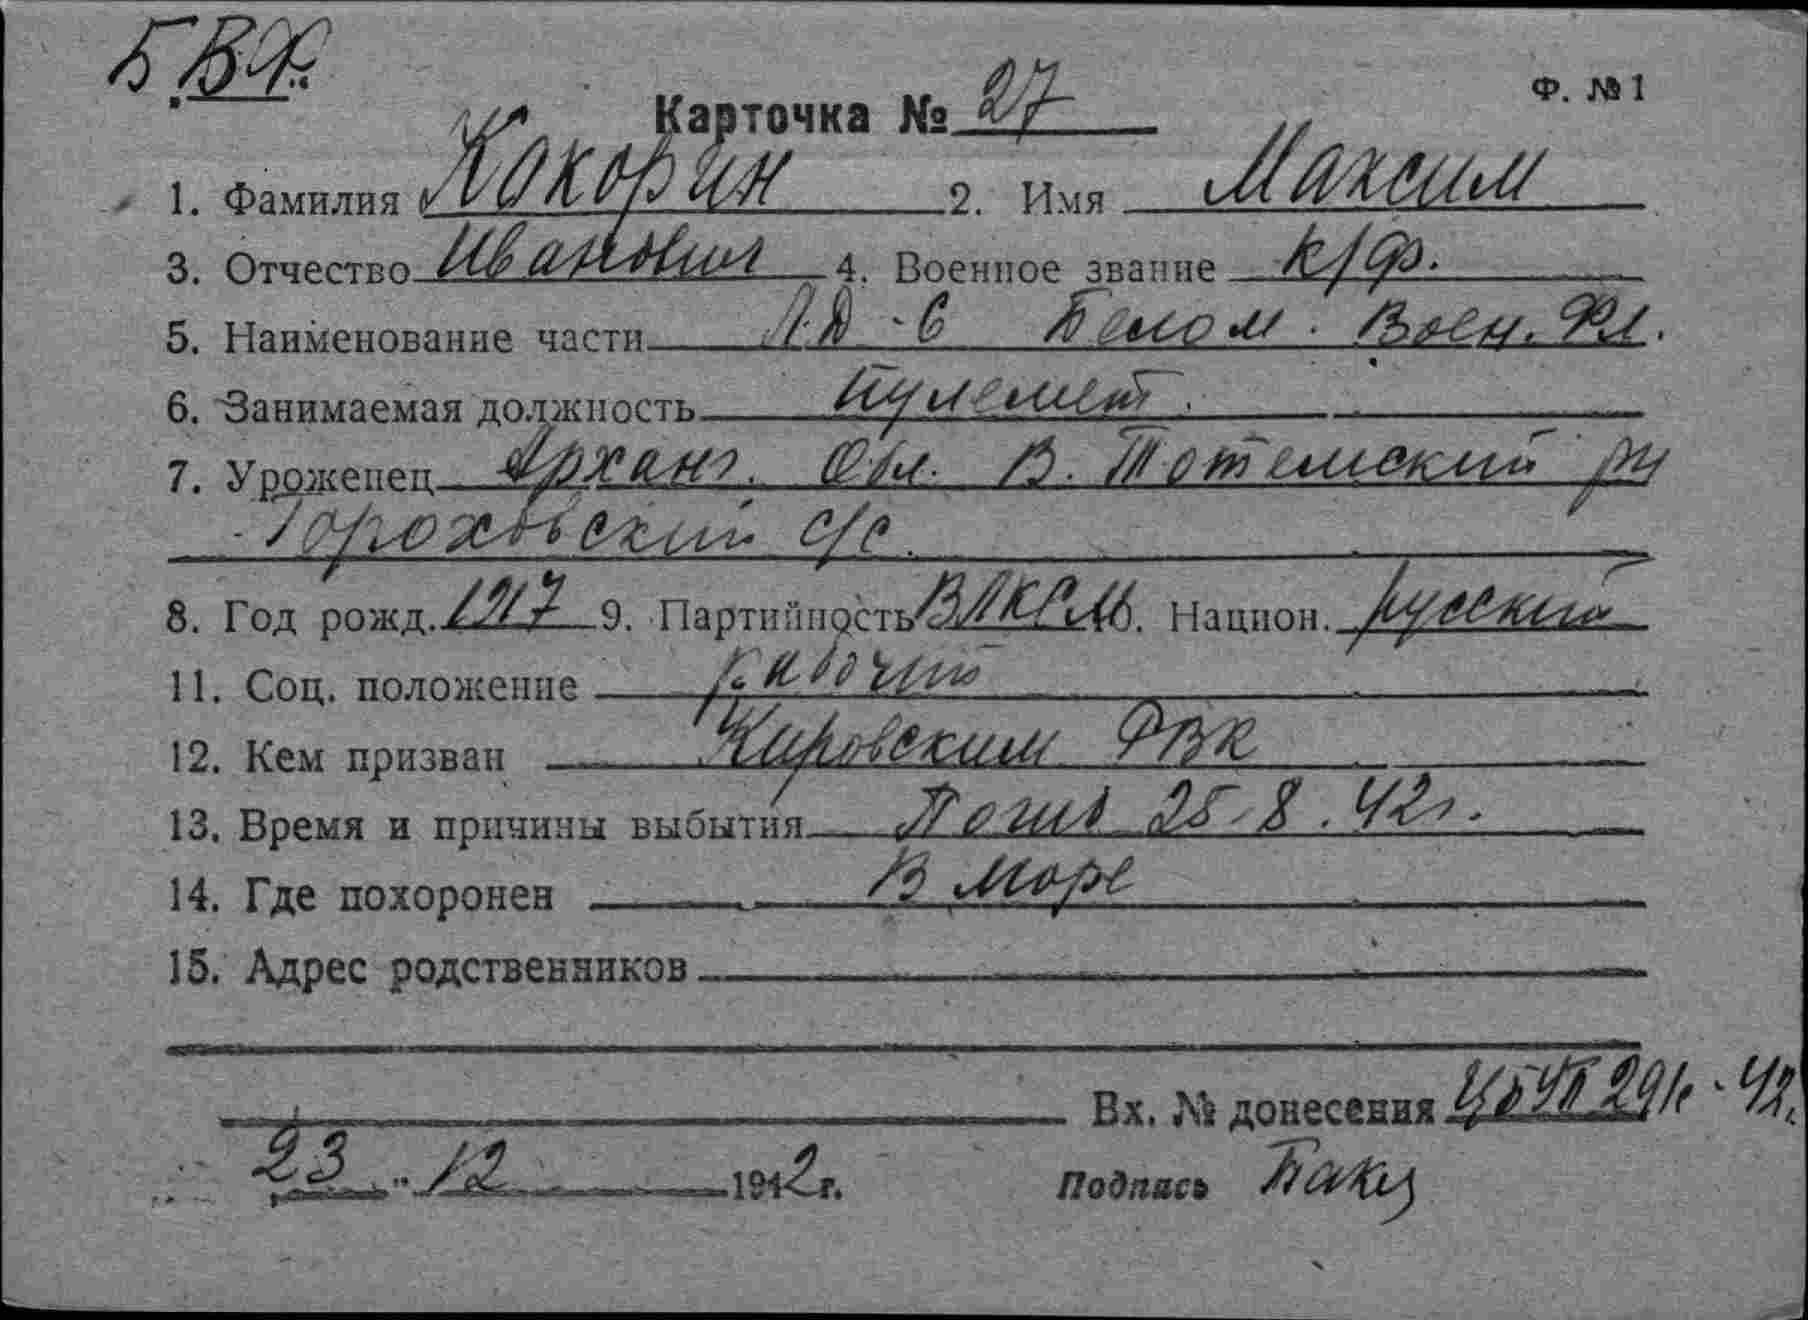 БВФ.
Карточка № 27 Ф. №1
1. Фамилия Кокорин 2. Имя Максим
3. Отчество Иванович 4. Военное звание к/ф.
5. Наименование части Л.Д - 6 Белом. Воен. Фл.
6. Занимаемая должность пулемет.
7. Уроженец Арханг. Обл. В. Тотемский рн
Гороховский с/с.
8. Год рожд. 1917 9. Партийность ВЛКСМ 10. Национ. русский
11. Соц. положение рабочий
12. Кем призван Кировским РВК
13. Время и причины выбытия Погиб 25.8.42г.
14. Где похоронен В море
15. Адрес родственников
Вх. № донесения 291с-42.
23 " 12 1942г. Подпись